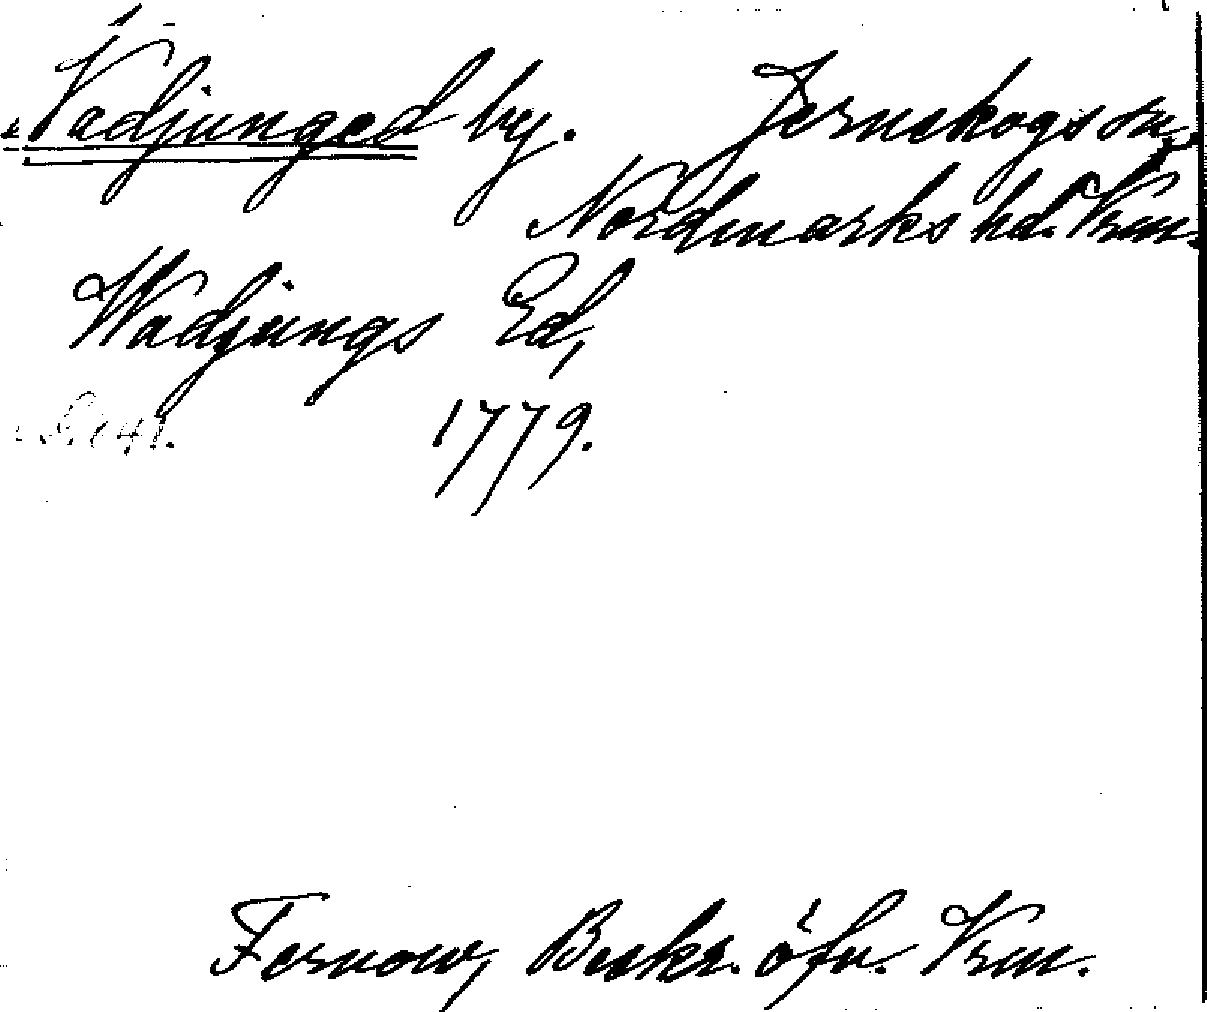 Vadjunged by. Jernskogs sn,
Nordmarks hd. Vrm.
Wadjungs Ed,
1779.
Fernow, Beskr. öfv. Vrm.